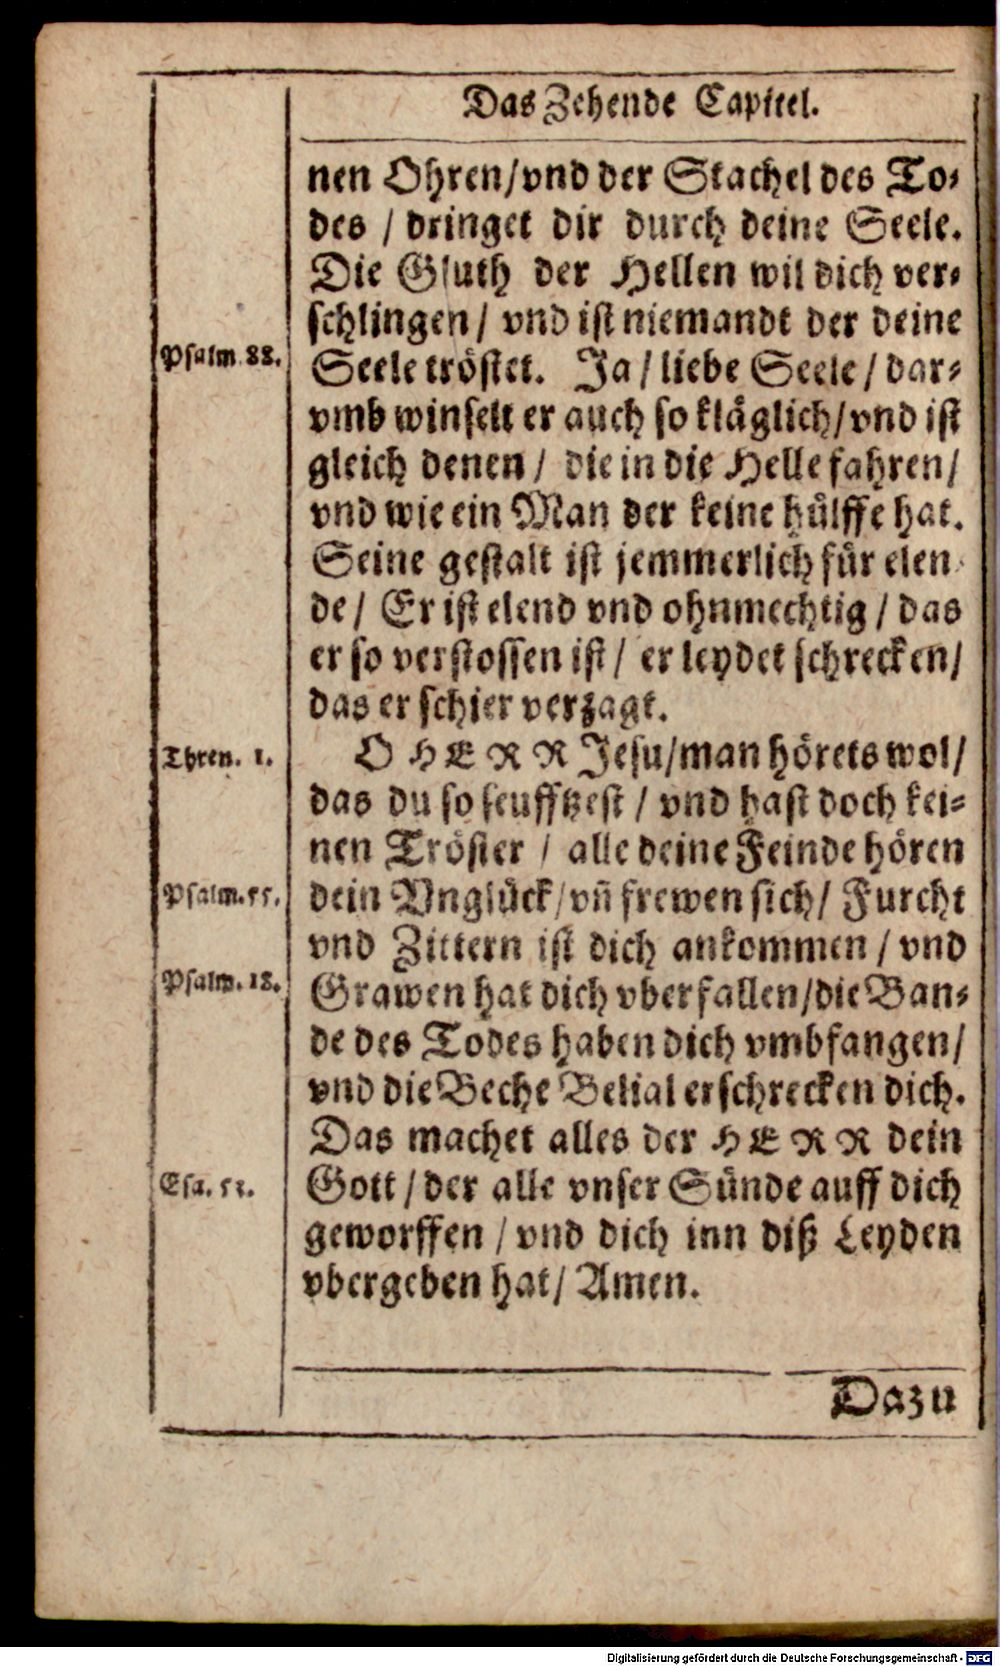 Das Zehende Capitel.
nen Ohren/vnd der Stachel des To-
des / dringet dir durch deine Seele.
Die Gluth der Hellen wil dich ver-
schlingen / vnd ist niemandt der deine
Psalm 88.
Seele tröstet. Ja / liebe Seele / dar-
vmb winselt er auch so kläglich/vnd ist
gleich denen / die in die Helle fahren/
vnd wie ein Man der keine hůlffe hat.
Seine gestalt ist jemmerlich fůr elen-
de / Er ist elend vnd ohnmechtig / das
er so verstossen ist / er leydet schrecken/
das er schier verzagt.
Thren. 1.
O HERR Jesu/man hörets wol/
das du so seufftzest / vnd hast doch kei-
nen Tröster / alle deine Feinde hören
Psalm.55.
dein Vnglůck/vñ frewen sich/ Furcht
vnd Zittern ist dich ankommen / vnd
Psalm. 18.
Grawen hat dich vberfallen/die Ban-
de des Todes haben dich vmbfangen/
vnd die Beche Belial erschrecken dich.
Das machet alles der HERR dein
Esa. 53.
Gott / der alle vnser Sůnde auff dich
geworffen / vnd dich inn diß Leyden
vbergeben hat/ Amen.
Dazu
Digitalisierung gefördert durch die Deutsche Forschungsgemeinschaft - DFG